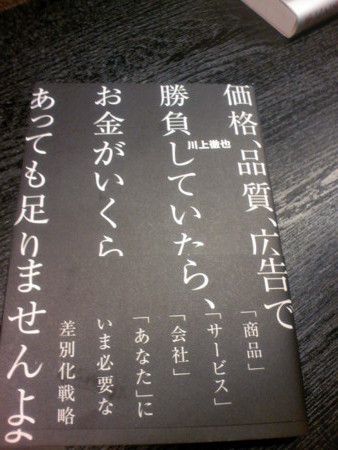 価格、品質、広告で
勝負していたら、
お金がいくら
あっても足りませんよ
川上徹也
「商品」
「サービス」
「会社」
「あなた」に
いま必要な
差別化戦略